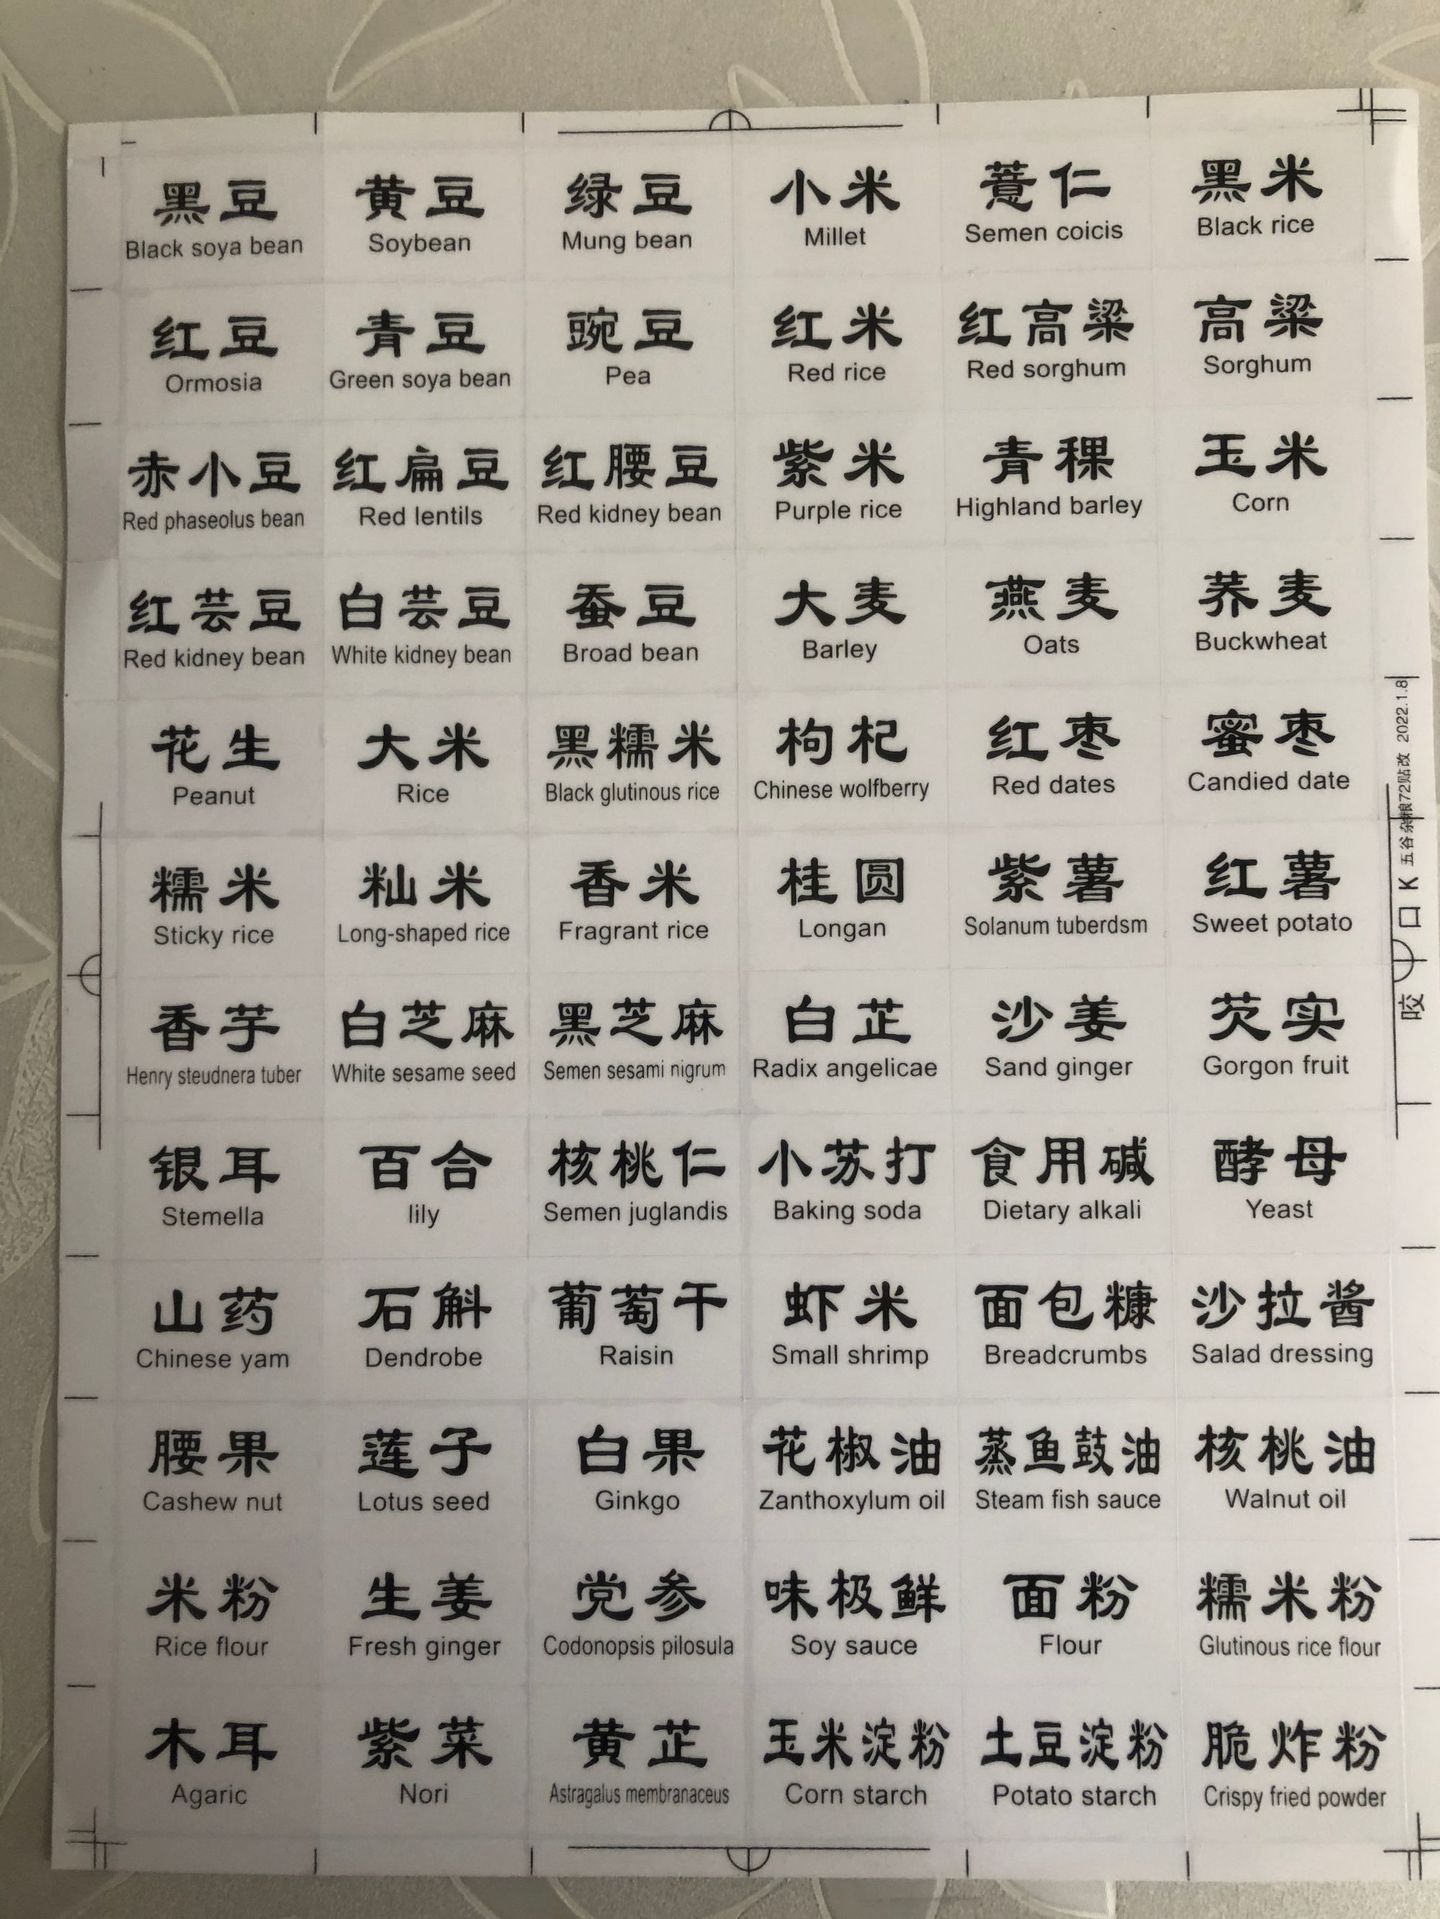 黑豆 黄豆 绿豆 小米 薏仁 黑米
Black soya bean Soybean Mung bean Millet Semen coicis Black rice
红豆 青豆 豌豆 红米 红高粱 高粱
Ormosia Green soya bean Pea Red rice Red sorghum Sorghum
赤小豆 红扁豆 红腰豆 紫米 青稞 玉米
Red phaseolus bean Red lentils Red kidney bean Purple rice Highland barley Corn
红芸豆 白芸豆 蚕豆 大麦 燕麦 荞麦
Red kidney bean White kidney bean Broad bean Barley Oats Buckwheat
花生 大米 黑糯米 枸杞 红枣 蜜枣
Peanut Rice Black glutinous rice Chinese wolfberry Red dates Candied date
糯米 籼米 香米 桂圆 紫薯 红薯
Sticky rice Long-shaped rice Fragrant rice Longan Solanum tuberdsm Sweet potato
香芋 白芝麻 黑芝麻 白芷 沙姜 芡实
Henry steudnera tuber White sesame seed Semen sesami nigrum Radix angelicae Sand ginger Gorgon fruit
银耳 百合 核桃仁 小苏打 食用碱 酵母
Stemella lily Semen juglandis Baking soda Dietary alkali Yeast
山药 石斛 葡萄干 虾米 面包糠 沙拉酱
Chinese yam Dendrobe Raisin Small shrimp Breadcrumbs Salad dressing
腰果 莲子 白果 花椒油 蒸鱼鼓油 核桃油
Cashew nut Lotus seed Ginkgo Zanthoxylum oil Steam fish sauce Walnut oil
米粉 生姜 党参 味极鲜 面粉 糯米粉
Rice flour Fresh ginger Codonopsis pilosula Soy sauce Flour Glutinous rice flour
木耳 紫菜 黄芷 玉米淀粉 土豆淀粉 脆炸粉
Agaric Nori Astragalus membranaceus Corn starch Potato starch Crispy fried powder
咬口 K 五谷杂粮72贴改 2022.1.8